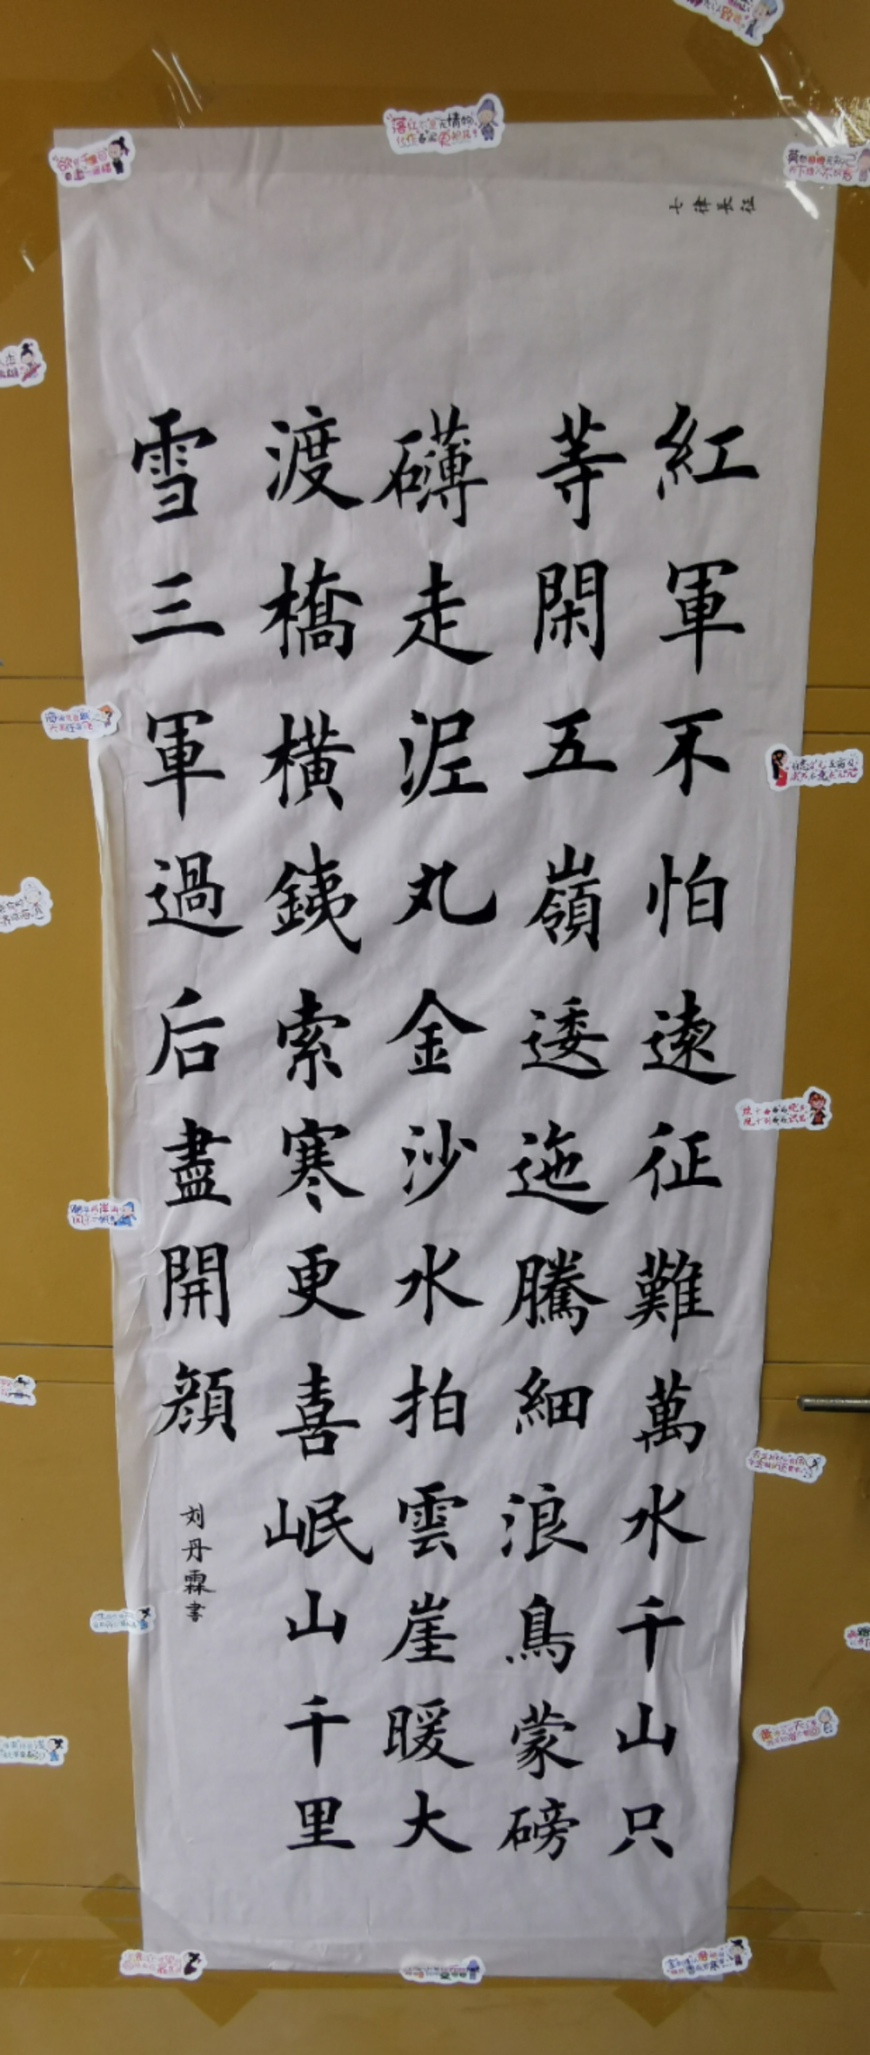 七律長征
紅軍不怕遠征難萬水千山只
等閑五嶺逶迤騰細浪烏蒙磅
礴走泥丸金沙水拍雲崖暖大
渡橋橫鐵索寒更喜岷山千里
雪三軍過后盡開顔
刘丹霖書